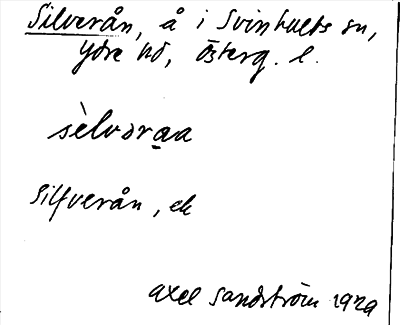 Silverån, å i Svinhults sn,
Ydre hd, Österg. l.
sèlvəraa
Silfverån, ek
Axel Sandström 1929